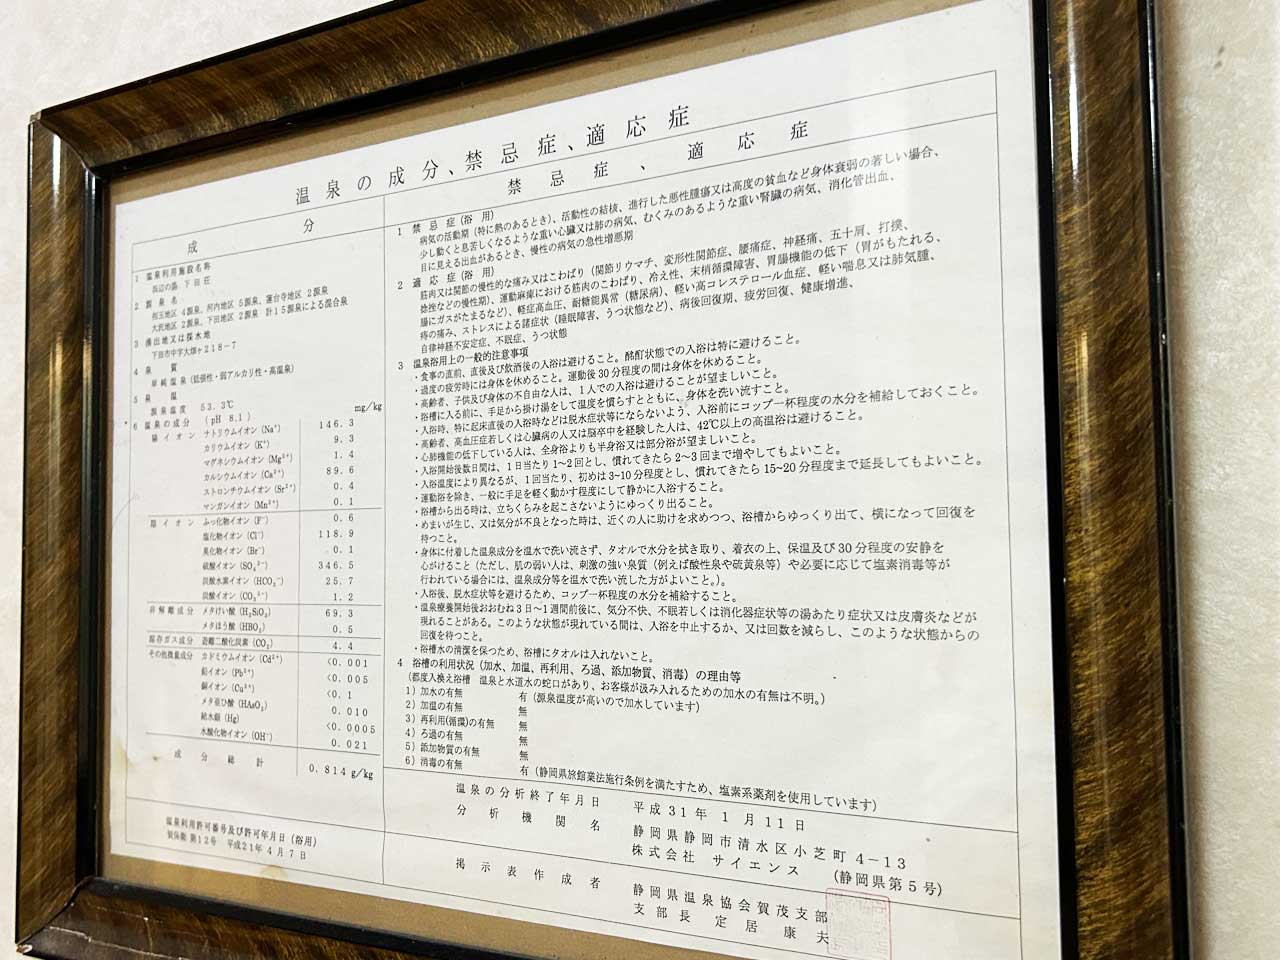 温泉の成分、禁忌症、適応症
成分
1 温泉利用施設名称
浜辺の湯 下田荘
2 源泉名
相玉地区 4源泉、河内地区 5源泉、蓮台寺地区 2源泉
大沢地区 2源泉、下田地区 2源泉 計15源泉による混合泉
3 湧出地又は採水地
下田市中字大畑ヶ218-7
4 泉質
単純温泉(低張性・弱アルカリ性・高温泉)
5 泉温
源泉温度 53.3℃
6 温泉の成分 (pH 8.1) mg/kg
陽イオン ナトリウムイオン(Na⁺) 146.3
カリウムイオン(K⁺) 9.3
マグネシウムイオン(Mg²⁺) 1.4
カルシウムイオン(Ca²⁺) 89.6
ストロンチウムイオン(Sr²⁺) 0.4
マンガンイオン(Mn²⁺) 0.1
陰イオン ふっ化物イオン(F⁻) 0.6
塩化物イオン(Cl⁻) 118.9
臭化物イオン(Br⁻) 0.1
硫酸イオン(SO₄²⁻) 346.5
炭酸水素イオン(HCO₃⁻) 25.7
炭酸イオン(CO₃²⁻) 1.2
非解離成分 メタけい酸(H₂SiO₃) 69.3
メタほう酸(HBO₂) 0.5
溶存ガス成分 遊離二酸化炭素(CO₂) 4.4
その他微量成分 カドミウムイオン(Cd²⁺) <0.001
鉛イオン(Pb²⁺) <0.005
銅イオン(Cu²⁺) <0.1
メタ亜ひ酸(HAsO₂) 0.010
総水銀(Hg) <0.0005
水酸化物イオン(OH⁻) 0.021
成分総計 0.814 g/kg
温泉利用許可番号及び許可年月日(浴用)
賀保衛 第12号 平成21年4月7日
禁忌症、適応症
1 禁忌症(浴用)
病気の活動期(特に熱のあるとき)、活動性の結核、進行した悪性腫瘍又は高度の貧血など身体衰弱の著しい場合、
少し動くと息苦しくなるような重い心臓又は肺の病気、むくみのあるような重い腎臓の病気、消化管出血、
目に見える出血があるとき、慢性の病気の急性増悪期
2 適応症(浴用)
筋肉又は関節の慢性的な痛み又はこわばり(関節リウマチ、変形性関節症、腰痛症、神経痛、五十肩、打撲、
捻挫などの慢性期)、運動麻痺における筋肉のこわばり、冷え性、末梢循環障害、胃腸機能の低下(胃がもたれる、
腸にガスがたまるなど)、軽症高血圧、耐糖能異常(糖尿病)、軽い高コレステロール血症、軽い喘息又は肺気腫、
痔の痛み、ストレスによる諸症状(睡眠障害、うつ状態など)、病後回復期、疲労回復、健康増進、
自律神経不安定症、不眠症、うつ状態
3 温泉浴用上の一般的注意事項
・食事の直前、直後及び飲酒後の入浴は避けること。酩酊状態での入浴は特に避けること。
・過度の疲労時には身体を休めること。運動後30分程度の間は身体を休めること。
・高齢者、子供及び身体の不自由な人は、1人での入浴は避けることが望ましいこと。
・浴槽に入る前に、手足から掛け湯をして温度を慣らすとともに、身体を洗い流すこと。
・入浴時、特に起床直後の入浴時などは脱水症状等にならないよう、入浴前にコップ一杯程度の水分を補給しておくこと。
・高齢者、高血圧症若しくは心臓病の人又は脳卒中を経験した人は、42℃以上の高温浴は避けること。
・心肺機能の低下している人は、全身浴よりも半身浴又は部分浴が望ましいこと。
・入浴開始後数日間は、1日当たり1~2回とし、慣れてきたら2~3回まで増やしてもよいこと。
・入浴温度により異なるが、1回当たり、初めは3~10分程度とし、慣れてきたら15~20分程度まで延長してもよいこと。
・運動浴を除き、一般に手足を軽く動かす程度にして静かに入浴すること。
・浴槽から出る時は、立ちくらみを起こさないようにゆっくり出ること。
・めまいが生じ、又は気分が不良となった時は、近くの人に助けを求めつつ、浴槽からゆっくり出て、横になって回復を
待つこと。
・身体に付着した温泉成分を温水で洗い流さず、タオルで水分を拭き取り、着衣の上、保温及び30分程度の安静を
心がけること(ただし、肌の弱い人は、刺激の強い泉質(例えば酸性泉や硫黄泉等)や必要に応じて塩素消毒等が
行われている場合には、温泉成分等を温水で洗い流した方がよいこと。)。
・入浴後、脱水症状等を避けるため、コップ一杯程度の水分を補給すること。
・温泉療養開始後おおむね3日~1週間前後に、気分不快、不眠若しくは消化器症状等の湯あたり症状又は皮膚炎などが
現れることがある。このような状態が現れている間は、入浴を中止するか、又は回数を減らし、このような状態からの
回復を待つこと。
・浴槽水の清潔を保つため、浴槽にタオルは入れないこと。
4 浴槽の利用状況(加水、加温、再利用、ろ過、添加物質、消毒)の理由等
(都度入換え浴槽 温泉と水道水の蛇口があり、お客様が汲み入れるための加水の有無は不明。)
1)加水の有無 有(源泉温度が高いので加水しています)
2)加温の有無 無
3)再利用(循環)の有無 無
4)ろ過の有無 無
5)添加物質の有無 無
6)消毒の有無 有(静岡県旅館業法施行条例を満たすため、塩素系薬剤を使用しています)
温泉の分析終了年月日 平成31年1月11日
分析機関名 静岡県静岡市清水区小芝町4-13
株式会社 サイエンス (静岡県第5号)
掲示表作成者 静岡県温泉協会賀茂支部
支部長 定居康夫